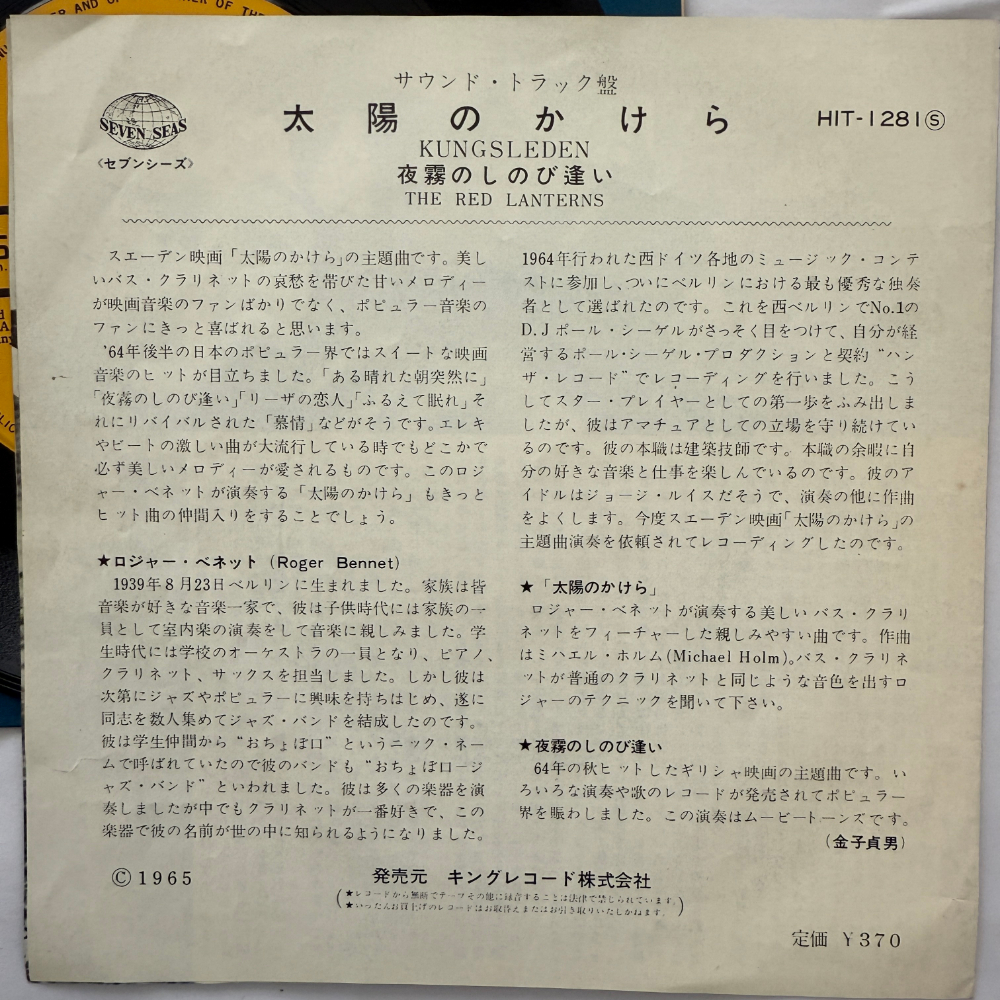 サウンド・トラック盤
太陽のかけら
HIT-1281Ⓢ
SEVEN SEAS
《セブンシーズ》
KUNGSLEDEN
夜霧のしのび逢い
THE RED LANTERNS
スエーデン映画「太陽のかけら」の主題曲です。美し
いバス・クラリネットの哀愁を帯びた甘いメロディー
が映画音楽のファンばかりでなく、ポピュラー音楽の
ファンにきっと喜ばれると思います。
'64年後半の日本のポピュラー界ではスイートな映画
音楽のヒットが目立ちました。「ある晴れた朝突然に」
「夜霧のしのび逢い」「リーザの恋人」「ふるえて眠れ」そ
れにリバイバルされた「慕情」などがそうです。エレキ
やビートの激しい曲が大流行している時でもどこかで
必ず美しいメロディーが愛されるものです。このロジ
ャー・ベネットが演奏する「太陽のかけら」もきっと
ヒット曲の仲間入りをすることでしょう。
★ロジャー・ベネット (Roger Bennet)
1939年8月23日ベルリンに生まれました。家族は皆
音楽が好きな音楽一家で、彼は子供時代には家族の一
員として室内楽の演奏をして音楽に親しみました。学
生時代には学校のオーケストラの一員となり、ピアノ、
クラリネット、サックスを担当しました。しかし彼は
次第にジャズやポピュラーに興味を持ちはじめ、遂に
同志を数人集めてジャズ・バンドを結成したのです。
彼は学生仲間から“おちょぼ口”というニック・ネー
ムで呼ばれていたので彼のバンドも“おちょぼ口ージ
ャズ・バンド”といわれました。彼は多くの楽器を演
奏しましたが中でもクラリネットが一番好きで、この
楽器で彼の名前が世の中に知られるようになりました。
1964年行われた西ドイツ各地のミュージック・コンテ
ストに参加し、ついにベルリンにおける最も優秀な独奏
者として選ばれたのです。これを西ベルリンでNo.1の
D.Jポール・シーゲルがさっそく目をつけて、自分が経
営するポール・シーゲル・プロダクションと契約“ハン
ザ・レコード”でレコーディングを行いました。こう
してスター・プレイヤーとしての第一歩をふみ出しま
したが、彼はアマチュアとしての立場を守り続けてい
るのです。彼の本職は建築技師です。本職の余暇に自
分の好きな音楽と仕事を楽しんでいるのです。彼のア
イドルはジョージ・ルイスだそうで、演奏の他に作曲
をよくします。今度スエーデン映画「太陽のかけら」の
主題曲演奏を依頼されてレコーディングしたのです。
★「太陽のかけら」
ロジャー・ベネットが演奏する美しいバス・クラリ
ネットをフィーチャーした親しみやすい曲です。作曲
はミハエル・ホルム(Michael Holm)。バス・クラリネ
ットが普通のクラリネットと同じような音色を出すロ
ジャーのテクニックを聞いて下さい。
★夜霧のしのび逢い
64年の秋ヒットしたギリシャ映画の主題曲です。い
ろいろな演奏や歌のレコードが発売されてポピュラー
界を賑わしました。この演奏はムービートーンズです。
(金子貞男)
©1965
発売元 キングレコード株式会社
★レコードから無断でテープその他に録音することは法律で禁じられています。
★いったんお買上げのレコードはお取替えまたはお引き取りいたしかねます。
定価 ￥370